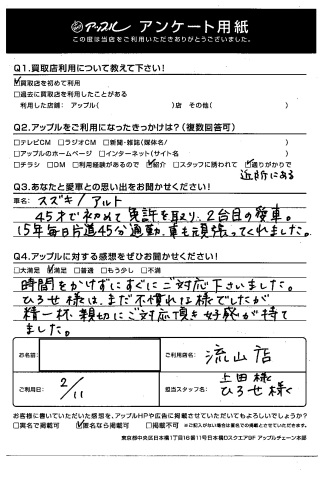 アップル アンケート用紙
この度は当店をご利用いただきありがとうございました。
Q1.買取店利用について教えて下さい!
☑買取店を初めて利用
□過去に買取店を利用したことがある
利用した店舗: アップル( )店 その他( )
Q2.アップルをご利用になったきっかけは?(複数回答可)
□テレビCM □ラジオCM □新聞・雑誌(媒体名/ )
□アップルのホームページ □インターネット(サイト名 )
□チラシ □DM □利用経験があるので ☑紹介 □スタッフに誘われて ☑通りがかりで
近所にある
Q3.あなたと愛車との思い出をお聞かせください!
車名: スズキ/アルト
45才で初めて免許を取り、2台目の愛車。
15年毎日片道45分通勤、車も頑張ってくれました。
Q4.アップルに対する感想をぜひお聞かせください!
□大満足 ☑満足 □普通 □もう少し □不満
時間をかけずにすぐにご対応下さいました。
ひろせ様は、まだ不慣れな様でしたが
精一杯、親切にご対応頂き好感が持て
ました。
お名前
ご利用店名: 流山店
ご利用日: 2/11
担当スタッフ名: 上田様
ひろせ様
お客様に書いていただいた感想を、アップルHPや広告に掲載させていただいてもよろしいでしょうか?
□実名で掲載可 ☑匿名なら掲載可 □掲載不可 ※ご記入がない場合は匿名での掲載とさせていただきます。
東京都中央区日本橋1丁目16番11号日本橋Dスクエア9F アップルチェーン本部